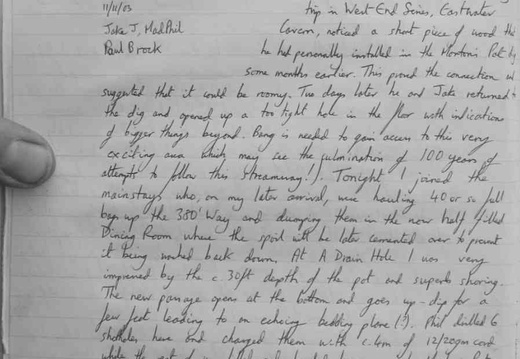 11/11/03 trip in West End Series, Eastwater
Jake J, Mad Phil Cavern, noticed a short piece of wood
Paul Brock he had personally installed in the Morton's Pot
some months earlier. This proved the connection
suggested that it could be roomy. Two days later he and Jake returned
the dig and opened up a too tight hole in the floor with indications
of bigger things beyond. Bang is needed to gain access to this very
exciting area which may see the culmination of 100 years of
attempts to follow this streamway!). Tonight I joined the
mainstays who, on my later arrival, were hauling 40 or so full
bags up the 380' Way and dumping them in the now half filled
Dining Room where the spoil will be later cemented over to prevent
it being washed back down. At A Drain Hole I was very
impressed by the c. 30ft depth of the pot and superb shoring.
The new passage opens at the bottom and goes up-dip for a
few feet leading to an echoing bedding plane (!). Phil drilled 6
shotholes here and charged them with c.4m of 12/20gm cord
while the rest of